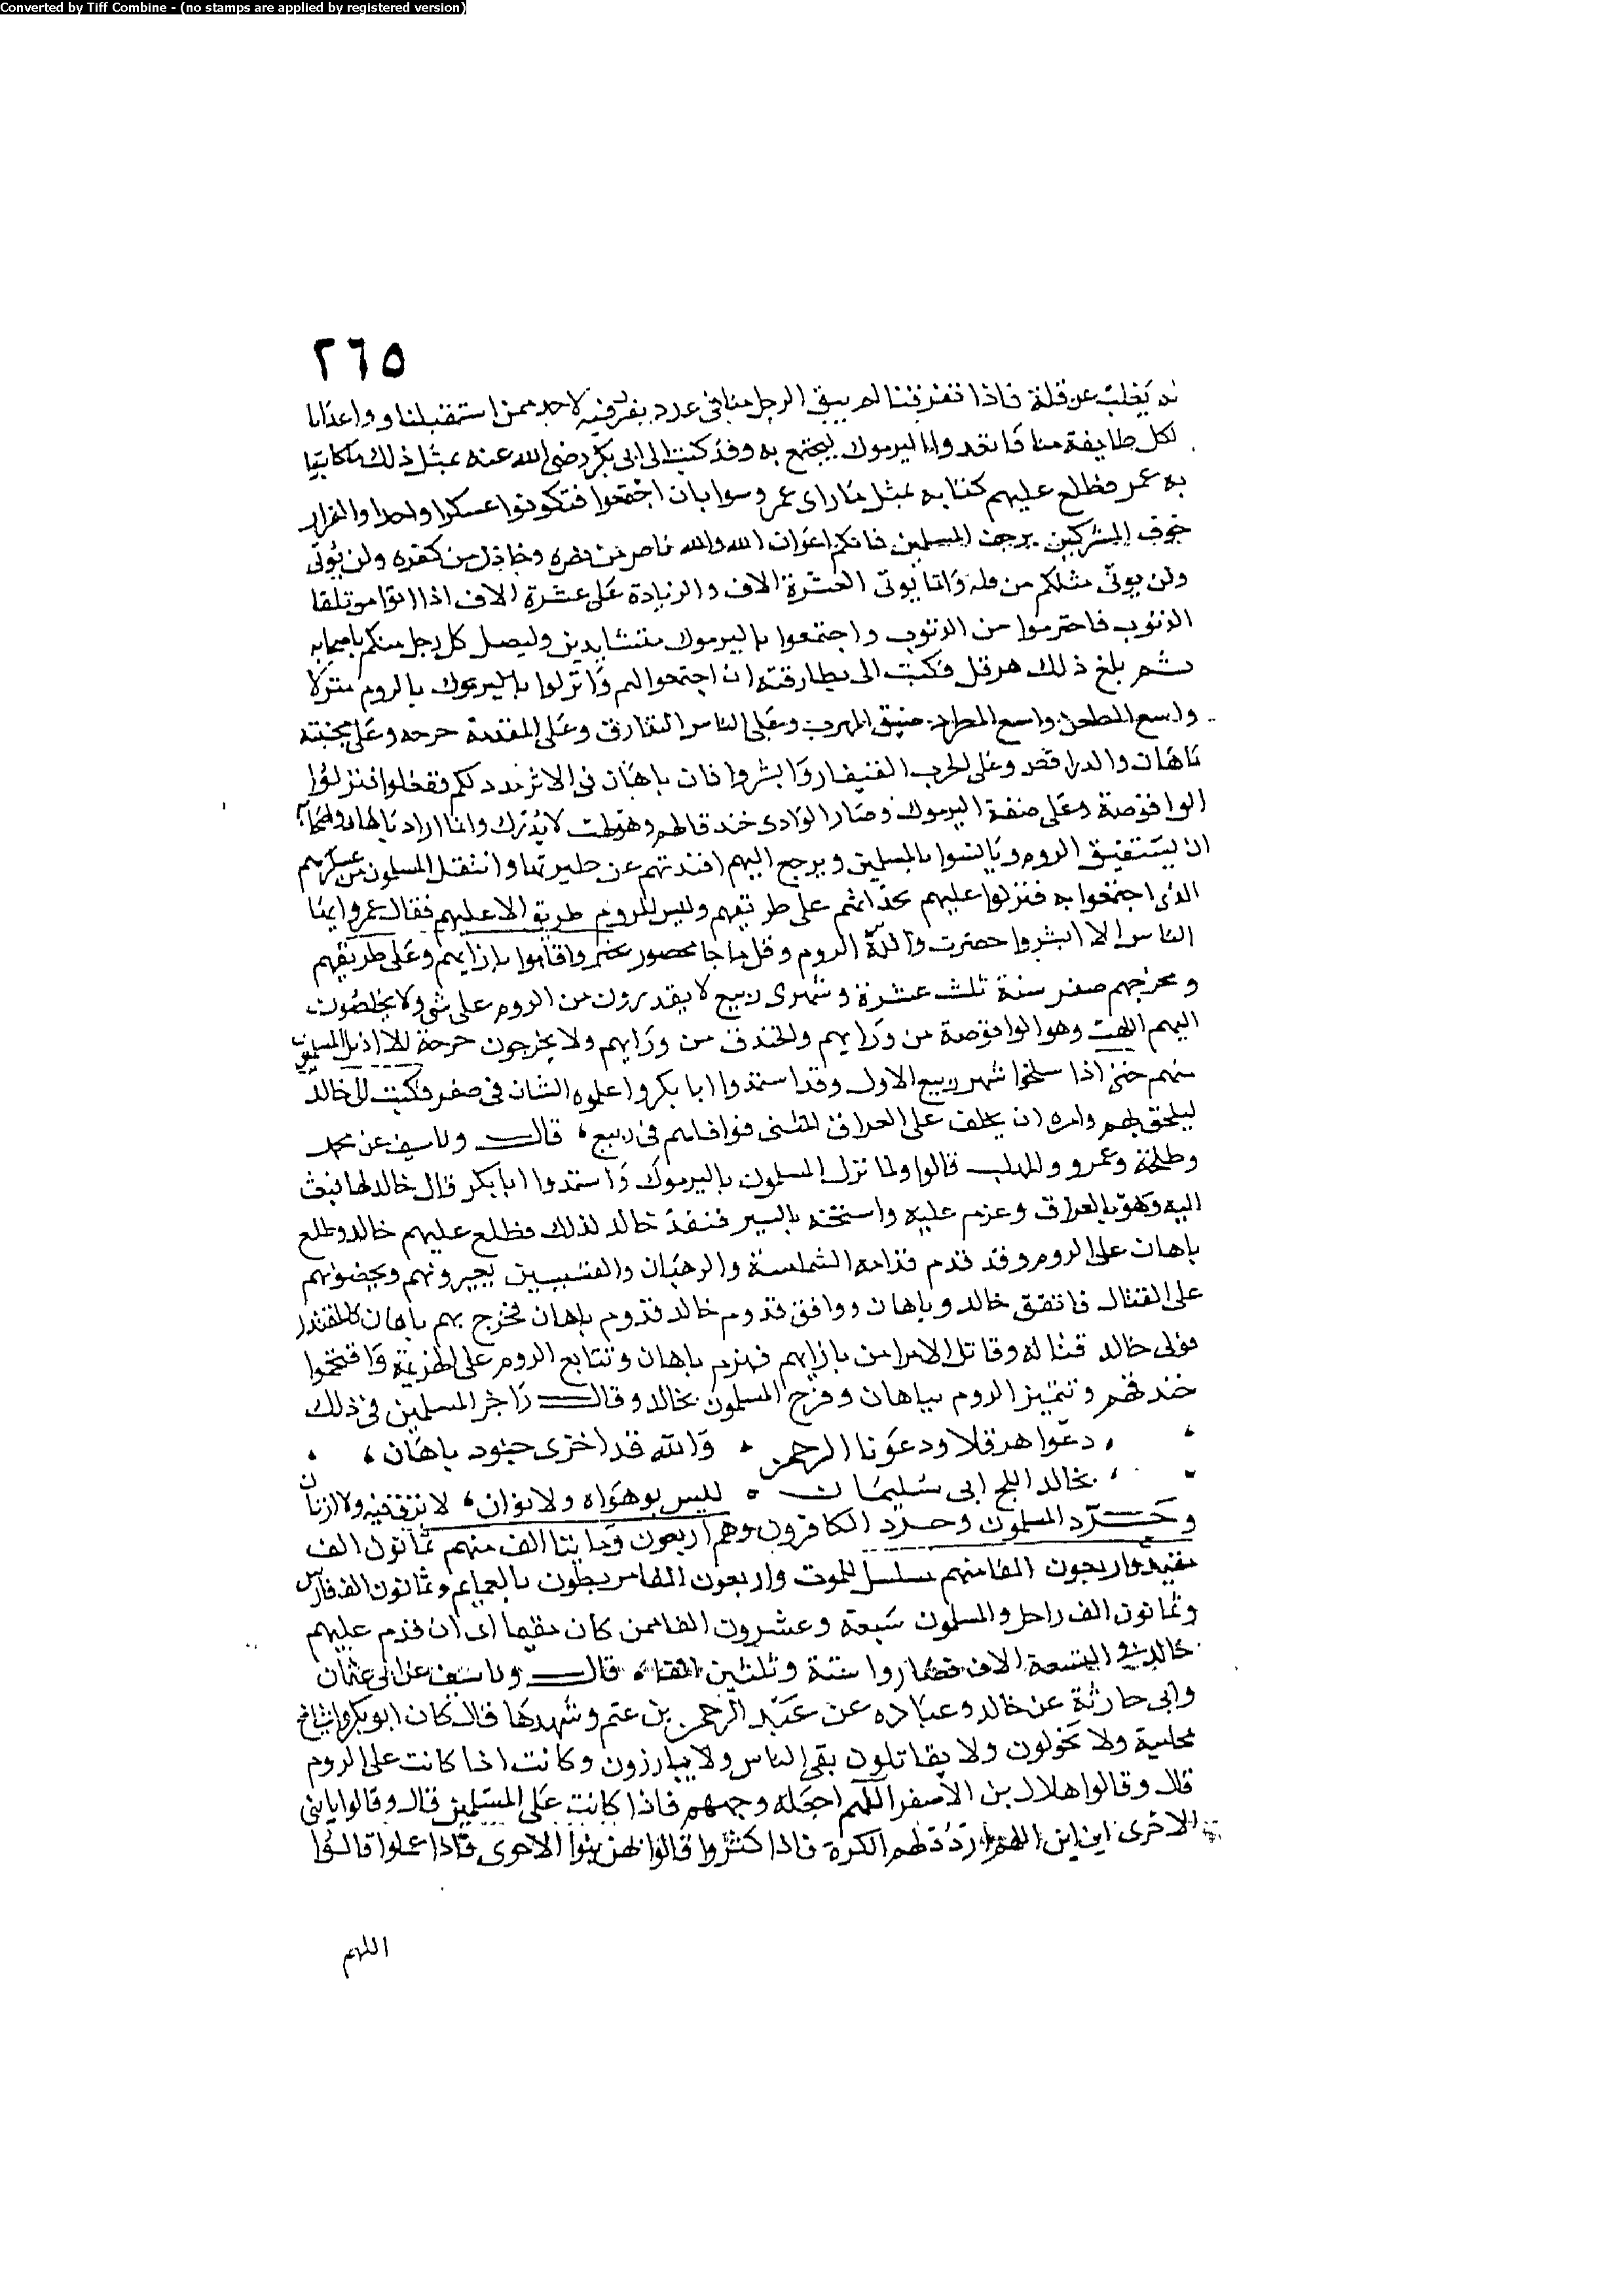 Converted by Tiff Combine - (no stamps are applied by registered version)
٢٦٥
يغلب عن قلة فاذا تفرقنا لم يبق الرجل منا فى عدد يقرن فيه لاحد ممن استقبلنا و واعدنا
لكل طايفة منا فاتعدوا اليرموك ليجتمع به وقد كتب الى ابى بكر رضى الله عنه بمثل ذلك ما كاتبوا
به عمر فطلع عليهم كتابه بمثل ما راى عمرو سوا بان اجتمعوا فتكونوا عسكرا واحدا والقوا
زحوف المشركين بزحف المسلمين فانكم اعوان الله والله ناصر من نصره وخاذل من كفره ولن يوتى
ولن يوتى مثلكم من قلة وانما يوتى العشرة الاف والزيادة على عشرة الاف اذا اتوا من تلقا
الذنوب فاحترسوا من الذنوب واجتمعوا باليرموك متساندين وليصل كل رجل منكم باصحابه
ثم بلغ ذلك هرقل فكتب الى بطارقته ان اجتمعوا لهم وانزلوا باليرموك بالروم منزلا
واسع العطن واسع المطرد ضيق المهرب وعلى الناس التذارق وعلى المقدمة جرجه وعلى مجنبتيه
باهان والدراقص وعلى الحرب الفيقار وابشروا فان باهان فى الاثر مدد لكم ففعلوا فنزلوا
الواقوصة وعلى ضفة اليرموك وصار الوادى خندقا لهم وهو لهب لا يدرك وانما اراد باهان واصحابه
ان يستفيق الروم ويانسوا بالمسلمين ويرجع اليهم افئدتهم عن طيرتها وانتقل المسلمون من عسكرهم
الذى اجتمعوا به فنزلوا عليهم بحذائهم على طريقهم وليس للروم طريق الا عليهم فقال عمرو ايها
الناس الا ابشروا حصرت والله الروم وقل ما جا محصور بخير واقاموا بازايهم وعلى طريقهم
ومخرجهم صفر سنة ثلث عشرة وشهرى ربيع لا يقدرون من الروم على شى ولا يخلصون
اليهم اللهب وهو الواقوصة من ورايهم والخندق من ورايهم ولا يخرجون خرجة الا اديل المسلمون
منهم حتى اذا سلخوا شهر ربيع الاول وقد استمدوا ابا بكر واعلموه الشان فى صفر فكتب الى خالد
ليلحق بهم وامره ان يخلف على العراق المثنى فوافاهم فى ربيع ، قال ونا سيف عن محمد
وطلحة وعمرو والمهلب قالوا ولما نزل المسلمون باليرموك واستمدوا ابا بكر قال خالد لها فبعث
اليه وهو بالعراق وعزم عليه واستحثه بالسير فنفذ خالد لذلك فطلع عليهم خالد وطلع
باهان على الروم وقد قدم قدامه الشمامسة والرهبان والقسيسين يغرونهم ويحضونهم
على القتال فاتفق خالد وباهان ووافق قدوم خالد قدوم باهان فخرج بهم باهان كالمقتدر
فولى خالد قتاله وقاتل الامرا من بازايهم فهزم باهان وتتابع الروم على الهزيمة واقتحموا
خندقهم وتتميز الروم بباهان وفرح المسلمون بخالد وقال راجز المسلمين فى ذلك
دعوا هرقلا ودعونا الرحمن ، والله قد اخزى جنود باهان ،
بخالد اللج ابى سليمان ، ليس بوهواه ولا نوان ، لا نزق فيه ولا ارنان
وحرد المسلمون وحرد الكافرون وهم اربعون ومايتا الف منهم ثمانون الف
مقيد واربعون الفا منهم مسلسل للموت واربعون الفا مربطون بالعمايم وثمانون الف فارس
وثمانون الف راجل والمسلمون سبعة وعشرون الفا ممن كان مقيما الى ان قدم عليهم
خالد فى التسعة الاف فصاروا ستة وثلثين الفا ، قال ونا سيف عن ابى عثمان
وابى حارثة عن خالد وعباده عن عبد الرحمن بن غنم وشهدها قال كان ابو بكر واشياخ
محلسة ولا يحولون ولا يقاتلون بقى الناس ولا يبارزون وكانت اذا كانت على الروم
قال وقالوا هلال بن الاصفر اللهم اجعله وجههم فاذا كانت على المسلمين قال وقالوا يا بنى
الاخرى اين اين اللهم اردد لهم الكرة فاذا كثروا قالوا لهن بنوا الاخرى فاذا عملوا قالوا
اللهم